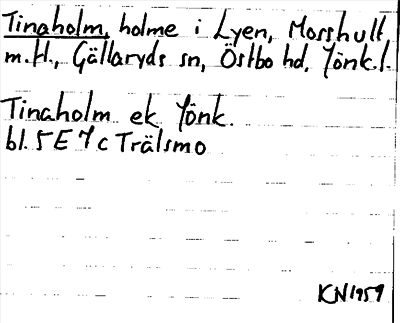 Tinaholm, holme i Lyen, Mosshult,
m.H., Gällaryds sn, Östbo hd, Jönk.l.
Tinaholm ek Jönk.
bl. 5E 7c Trälsmo
KN 1959